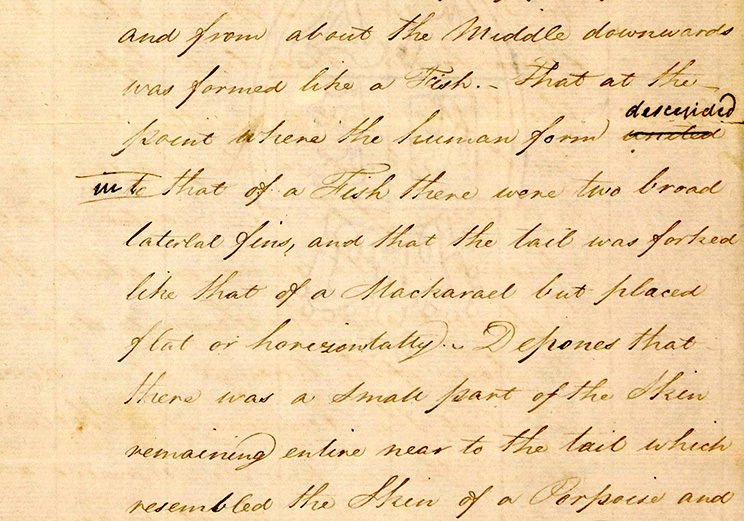 and from about the Middle downwards
was formed like a Fish. – That at the
point where the human form united descended
into that of a Fish there were two broad
laterlal fins, and that the tail was forked
like that of a Mackarael but placed
flat or horizontally. ~ Depones that
there was a Small part of the Skin
remaining entire near to the tail which
resembled the Skin of a Porpoise and